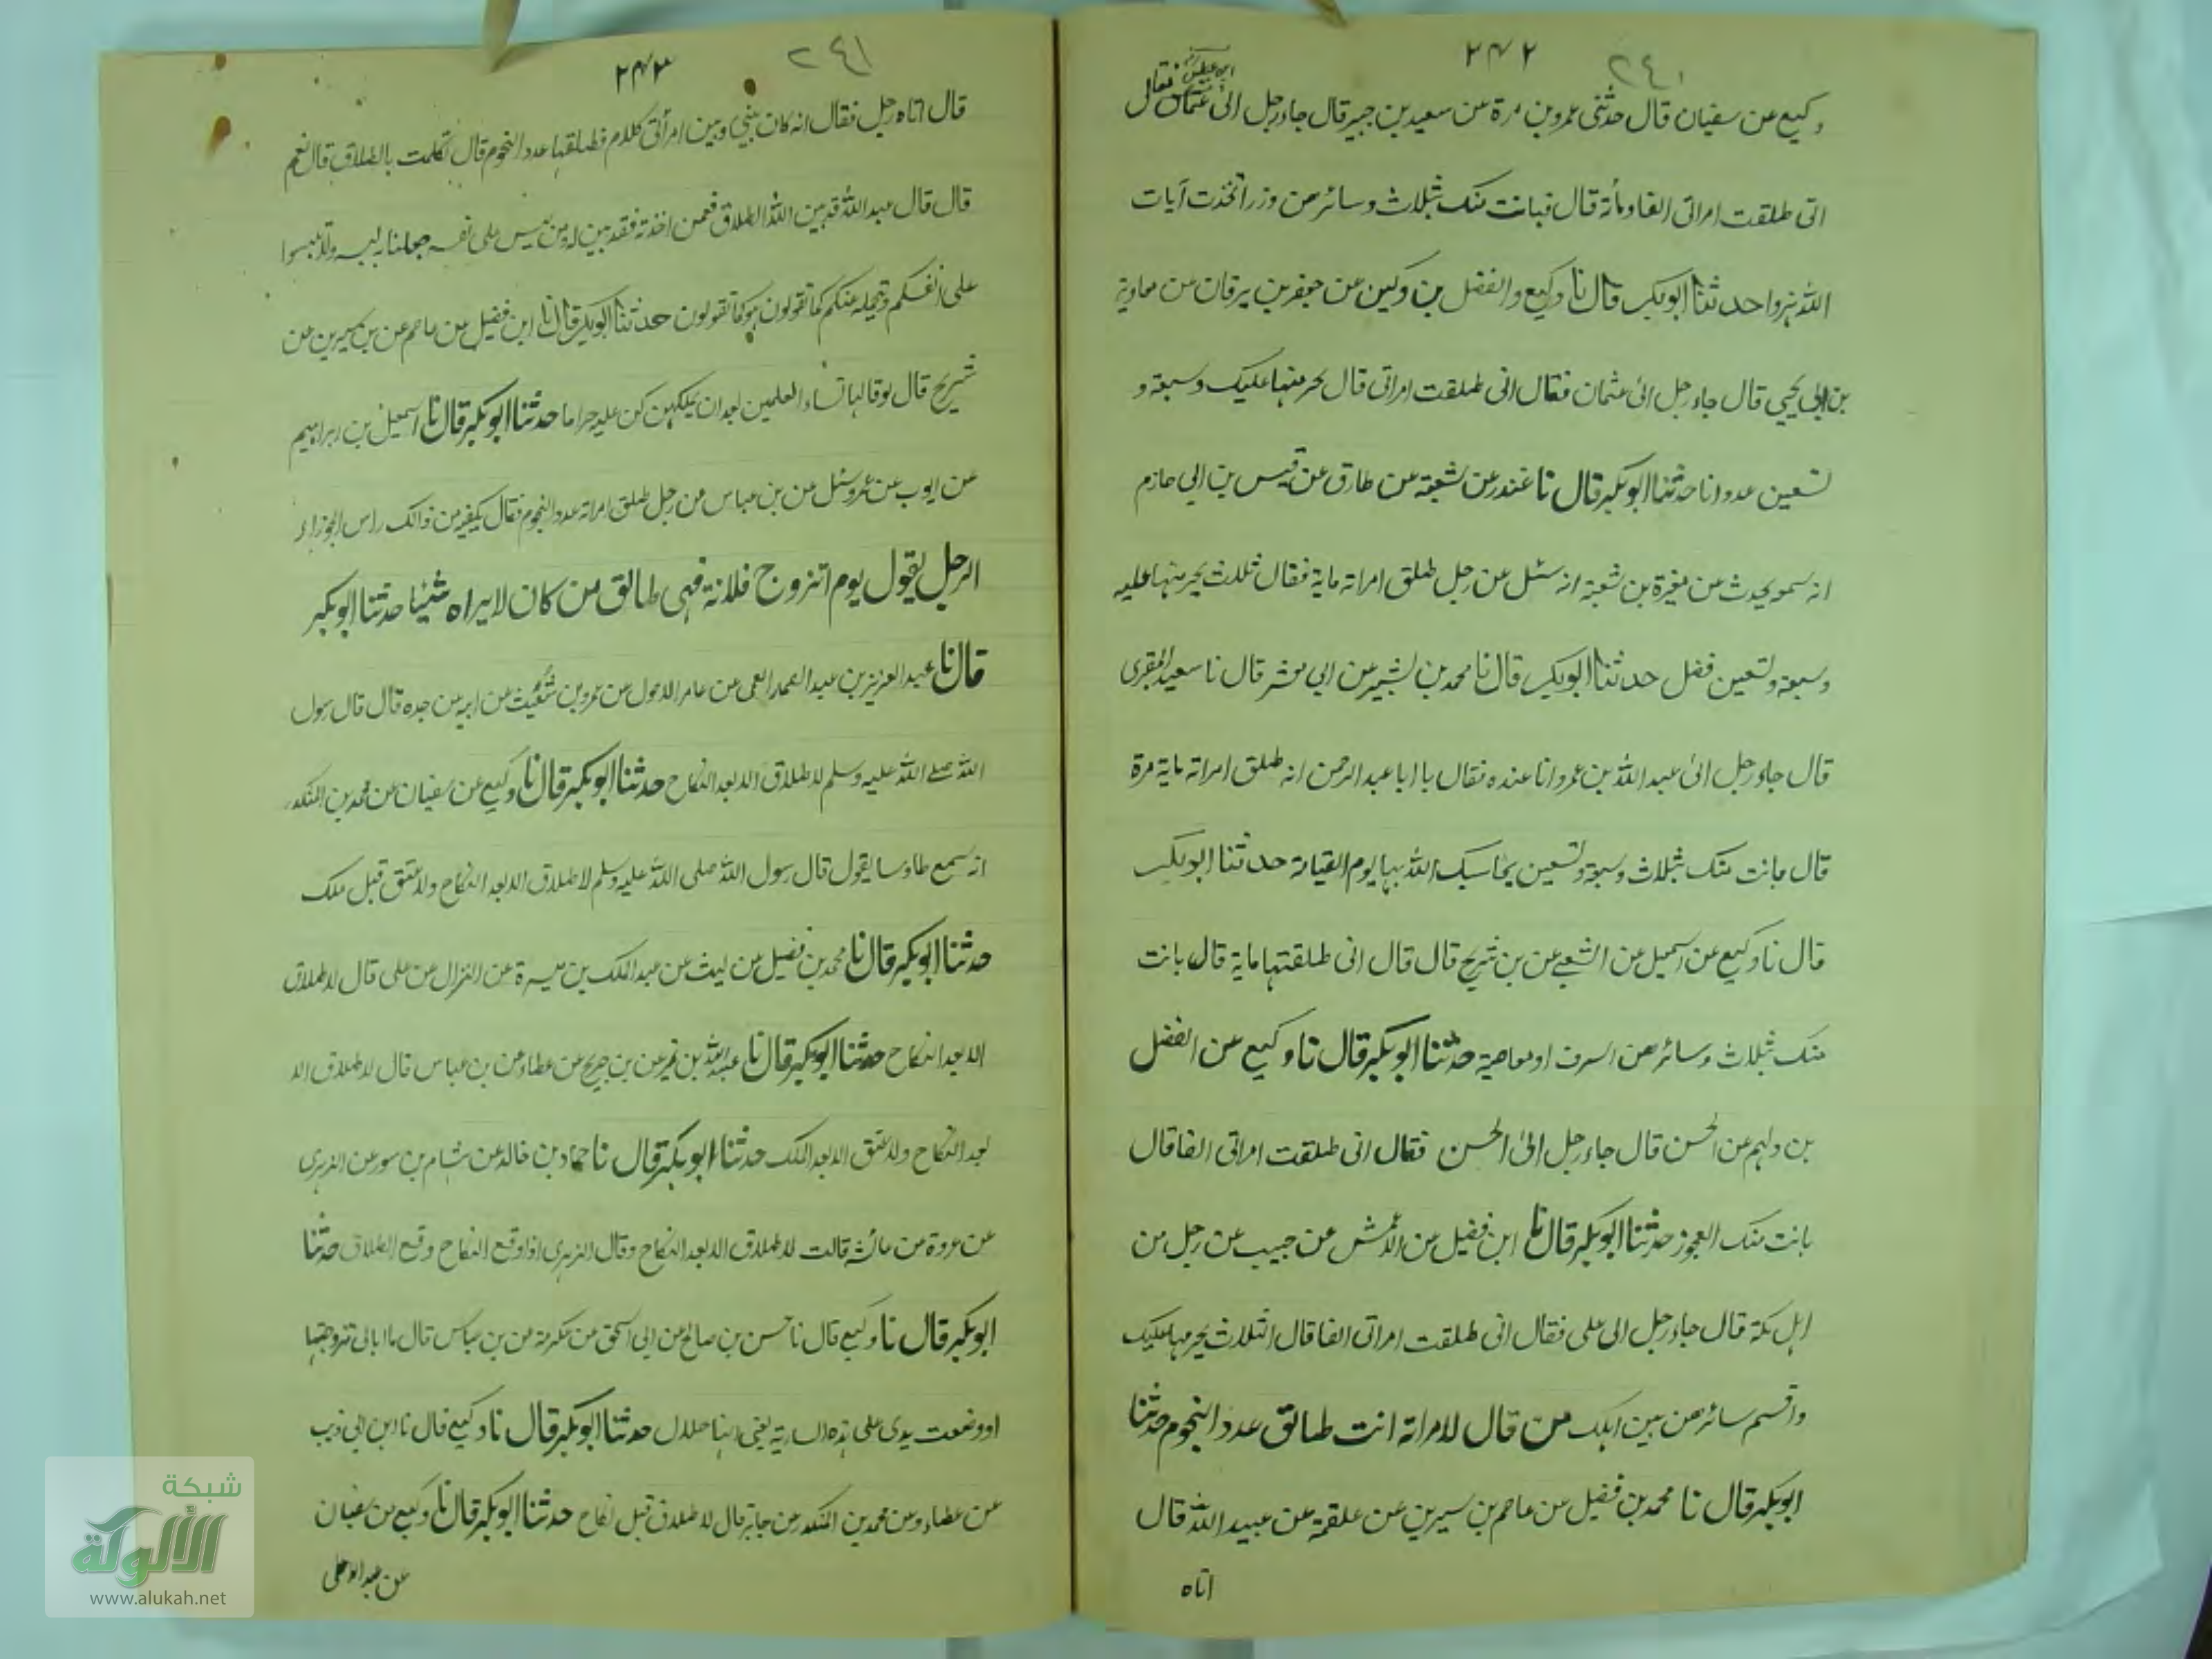 ٢٤٢
٢٤٠
ابن عباس
وكيع عن سفيان قال حدثنى عمرو بن مرة عن سعيد بن جبير قال جاء رجل الى عثمان فقال
انى طلقت امراتى الفا ومأة قال فبانت منك بثلاث وسائرهن وزر اتخذت آيات
الله هزوا حدثنا ابوبكر قال نا وكيع والفضل بن دكين عن جعفر بن برقان عن معاوية
بن ابى يحيى قال جاء رجل الى عثمان فقال انى طلقت امراتى قال تحرمها عليك وسبعة و
تسعين عدوانا حدثنا ابوبكر قال نا غندر عن شعبة عن طارق عن قيس بن ابى حازم
انه سمعه يحدث عن مغيرة بن شعبة انه سئل عن رجل طلق امراته ماية فقال ثلث يحرمنها عليه
وسبعة وتسعين فضل حدثنا ابوبكر قال نا محمد بن بشير عن ابى معشر قال نا سعيد المقبرى
قال جاء رجل الى عبد الله بن عمر وانا عنده فقال يا ابا عبد الرحمن انه طلق امراته ماية مرة
قال بانت منك بثلاث وسبعة وتسعين يحاسبك الله بها يوم القيامة حدثنا ابوبكر
قال نا وكيع عن اسمعيل عن الشعبى عن بن شريح قال قال انى طلقتها ماية قال بانت
منك بثلاث وسائرهن اسرف او معاصية حدثنا ابوبكر قال نا وكيع عن الفضل
بن دلهم عن الحسن قال جاء رجل الى الحسن فقال انى طلقت امراتى الفا قال
بانت منك العجوز حدثنا ابوبكر قال نا ابن فضيل عن الاعمش عن حبيب عن رجل من
اهل مكة قال جاء رجل الى على فقال انى طلقت امراتى الفا قال الثلاث يحرمها عليك
واقسم سائرهن بين اهلك من قال لامراته انت طالق عدد النجوم حدثنا
ابوبكر قال نا محمد بن فضيل عن عاصم بن سيرين عن علقمة عن عبيد الله قال
اتاه
٢٤٣
٢٤١
قال اتاه رجل فقال انه كان بينى وبين امرأتى كلام فطلقتها عدد النجوم قال تكلمت بالطلاق قال نعم
قال قال عبد الله قد بين الله الطلاق فمن اخذته فقد بين له ومن لبس على نفسه جعلنا به لبسه ولا تلبسوا
على انفسكم ونحمله عنكم كما تقولون هو كما تقولون حدثنا ابوبكر قال نا ابن فضيل عن عاصم عن بن سيرين عن
شريح قال لو قالها نساء العلمين بعد ان يملكهن كن عليه حراما حدثنا ابوبكر قال نا اسمعيل بن ابراهيم
عن ايوب عن عمرو سئل عن بن عباس عن رجل طلق امراته عدد النجوم فقال يكفيه من ذالك راس الجوزاء
الرجل يقول يوم اتزوج فلانة فهى طالق من كان لا يراه شيئا حدثنا ابوبكر
قال نا عبد العزيز بن عبد الصمد العمى عن عامر الاحول عن عمرو بن شعيب عن ابيه عن جده قال قال رسول
الله صلى الله عليه وسلم لا طلاق الا بعد النكاح حدثنا ابوبكر قال نا وكيع عن سفيان عن محمد بن المنكدر
انه سمع طاوسا يقول قال رسول الله صلى الله عليه وسلم لا طلاق الا بعد النكاح ولا عتق قبل ملك
حدثنا ابوبكر قال نا محمد بن فضيل عن ليث عن عبد الملك بن ميسرة عن النزال عن على قال لا طلاق
الا بعد النكاح حدثنا ابوبكر قال نا عبد الله بن نمير عن بن جريج عن عطاء عن بن عباس قال لا طلاق الا
بعد النكاح ولا عتق الا بعد الملك حدثنا ابوبكر قال نا حماد بن خالد عن هشام بن سعد عن الزهرى
عن عروة عن عائشة قالت لا طلاق الا بعد النكاح وقال الزهرى اذا وقع النكاح وقع الطلاق حدثنا
ابوبكر قال نا وكيع قال نا حسن بن صالح عن ابى اسحق عن عكرمة عن بن عباس قال ما ابالى تزوجتها
او وضعت يدى على هذه السارية يعنى انها حلال حدثنا ابوبكر قال نا وكيع قال نا ابن ابى ذيب
عن عطاء وعن محمد بن المنكدر عن جابر قال لا طلاق قبل نكاح حدثنا ابوبكر قال نا وكيع عن سفيان
عن عبد الاعلى
شبكة
الألوكة
www.alukah.net